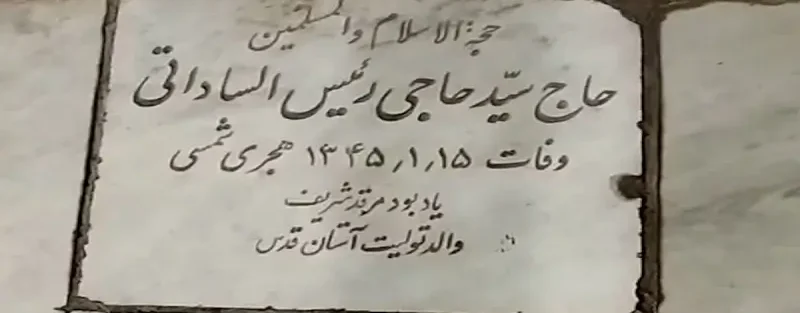 حجة الاسلام والمسلمین
حاج سیّد حاجی رئیس الساداتی
وفات ۱۳۴۵٫۱٫۱۵ هجری شمسی
یادبود مرقد شریف
والد تولیت آستان قدس